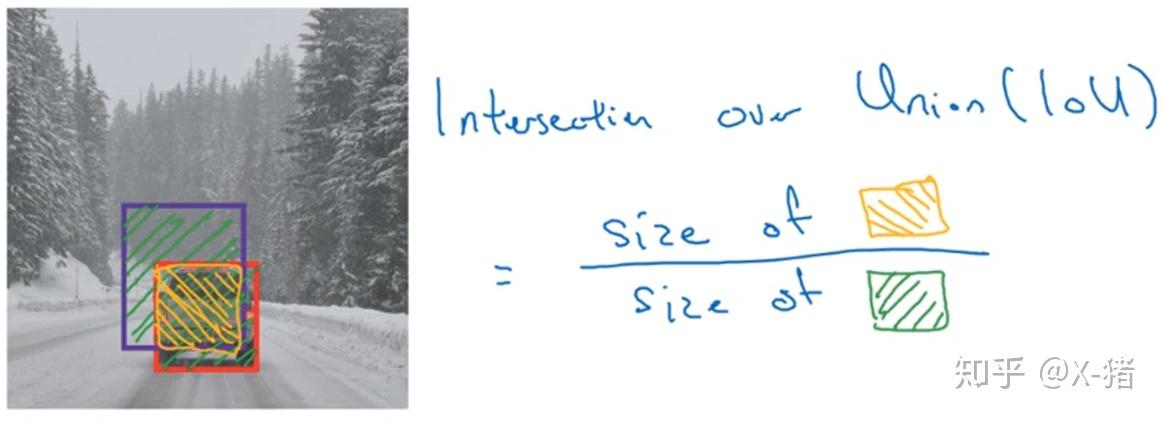 Intersection over Union (IoU)
= size of
size of
知乎 @X-猪